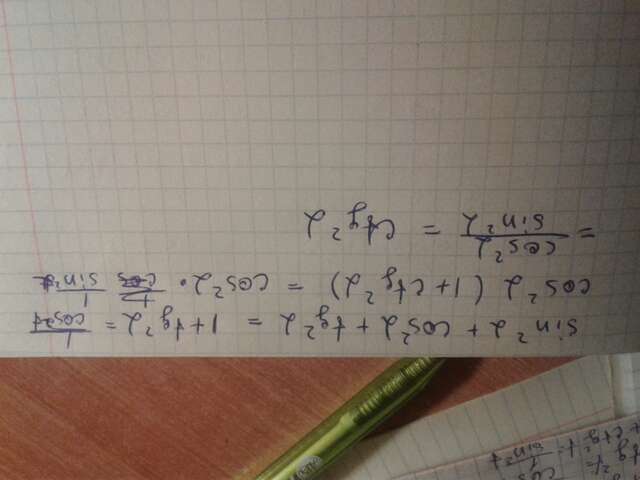 tg²t =
+ ctg²t = 1/sin²t
sin²α + cos²α + tg²α = 1 + tg²α = 1/cos²t
cos²α (1 + ctg²α) = cos²α · 1/sin²α
= cos²α/sin²α = ctg²α